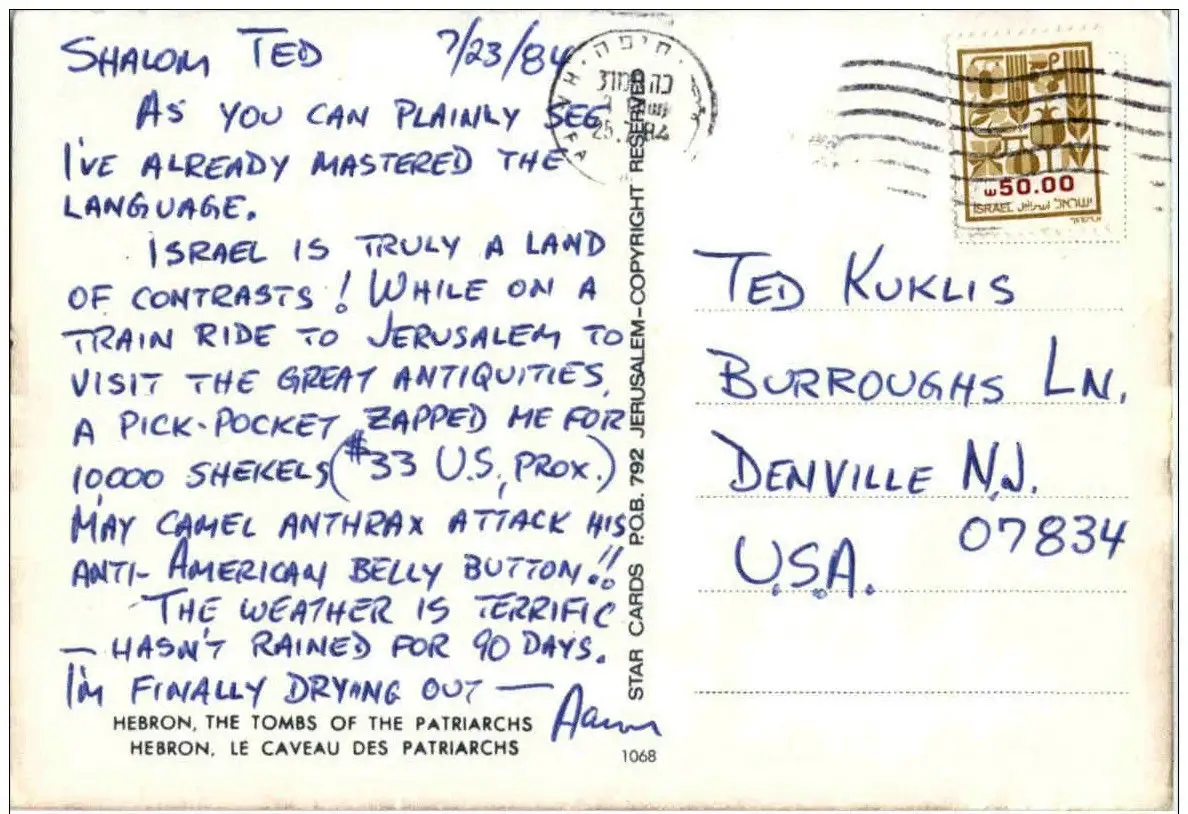 SHALOM TED 7/23/84
AS YOU CAN PLAINLY SEE
I'VE ALREADY MASTERED THE
LANGUAGE.
ISRAEL IS TRULY A LAND
OF CONTRASTS! WHILE ON A
TRAIN RIDE TO JERUSALEM TO
VISIT THE GREAT ANTIQUITIES,
A PICK-POCKET ZAPPED ME FOR
10,000 SHEKELS ($33 U.S., PROX.)
MAY CAMEL ANTHRAX ATTACK HIS
ANTI-AMERICAN BELLY BUTTON!!
THE WEATHER IS TERRIFIC
— HASN'T RAINED FOR 90 DAYS.
I'M FINALLY DRYING OUT —
Aaron
HEBRON, THE TOMBS OF THE PATRIARCHS
HEBRON, LE CAVEAU DES PATRIARCHS
STAR CARDS P.O.B. 792 JERUSALEM-COPYRIGHT RESERVED
1068
חיפה
25.7.84
50.00
ISRAEL اسرائيل ישראל
TED KUKLIS
BURROUGHS LN.
DENVILLE N.J.
07834
U.S.A.